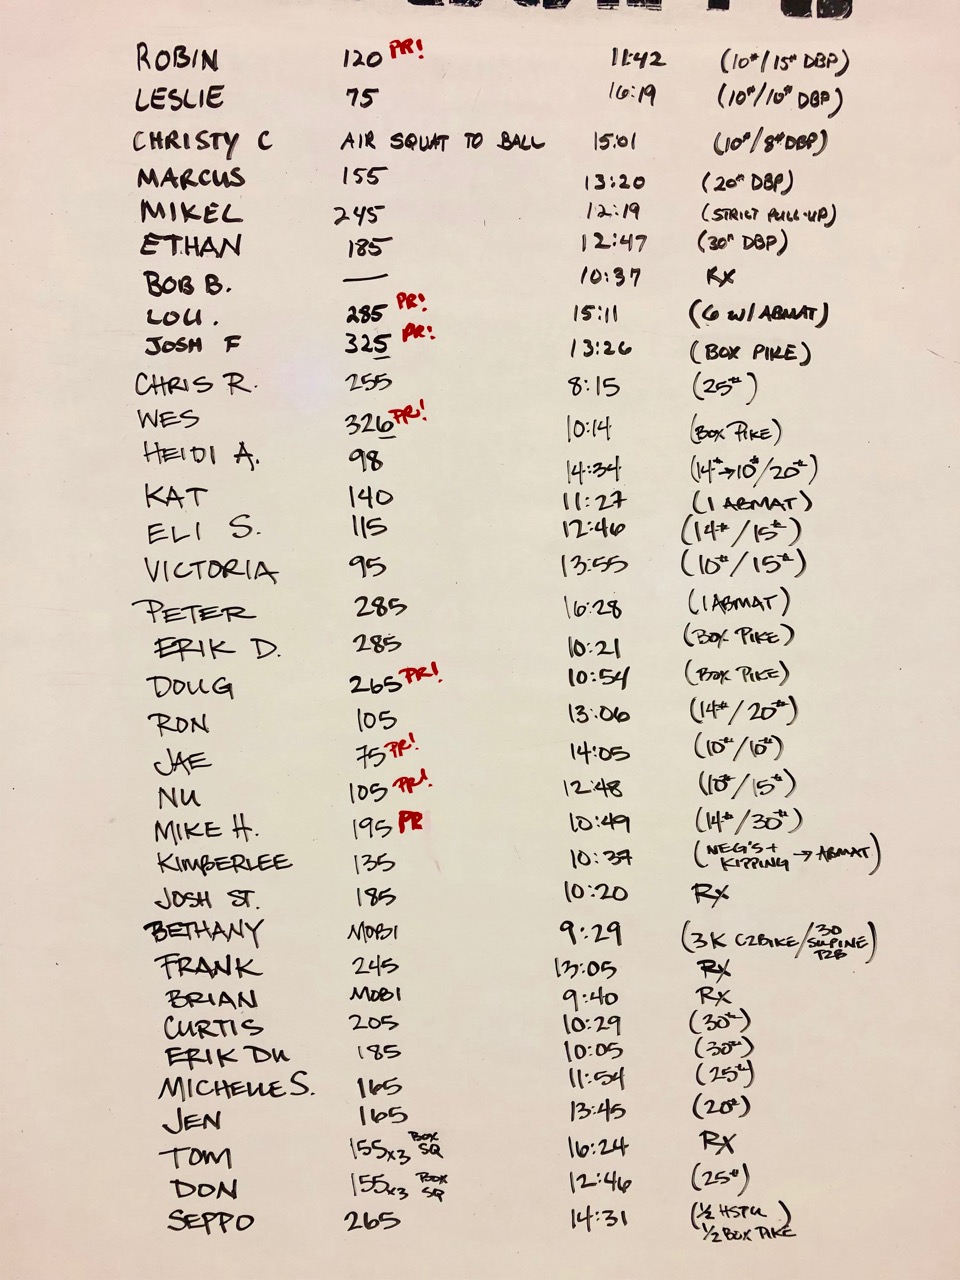 ROBIN 120 PR! 11:42 (10#/15# DBP)
LESLIE 75 16:19 (10#/10# DBP)
CHRISTY C AIR SQUAT TO BALL 15:01 (10#/8# DBP)
MARCUS 155 13:20 (20# DBP)
MIKEL 245 12:19 (STRICT PULL-UP)
ETHAN 185 12:47 (30# DBP)
BOB B. — 10:37 RX
LOU. 285 PR! 15:11 (6 W/ ABMAT)
JOSH F 325 PR! 13:26 (BOX PIKE)
CHRIS R. 255 8:15 (25#)
WES 326 PR! 10:14 (BOX PIKE)
HEIDI A. 98 14:34 (14#→10#/20#)
KAT 140 11:27 (1 ABMAT)
ELI S. 115 12:46 (14#/15#)
VICTORIA 95 13:55 (10#/15#)
PETER 285 16:28 (1 ABMAT)
ERIK D. 285 10:21 (BOX PIKE)
DOUG 265 PR! 10:54 (BOX PIKE)
RON 105 13:06 (14#/20#)
JAE 75 PR! 14:05 (10#/10#)
NU 105 PR! 12:48 (10#/15#)
MIKE H. 195 PR 10:49 (14#/30#)
KIMBERLEE 135 10:37 (NEG'S + KIPPING → ABMAT)
JOSH ST. 185 10:20 RX
BETHANY MOBI 9:29 (3K C2BIKE/30 SUPINE T2B)
FRANK 245 13:05 RX
BRIAN MOBI 9:40 RX
CURTIS 205 10:29 (30#)
ERIK DU 185 10:05 (30#)
MICHELLE S. 165 11:54 (25#)
JEN 165 13:45 (20#)
TOM 155x3 BOX SQ 16:24 RX
DON 155x3 BOX SQ 12:46 (25#)
SEPPO 265 14:31 (½ HSPU ½ BOX PIKE)